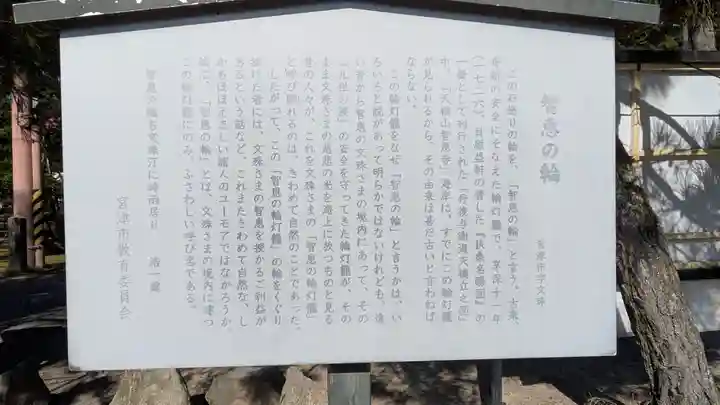 智恵の輪
宮津市字文珠
このお堀りの輪を、「智恵の輪」と言う。古来、
舟航の安全にそなえた輪灯籠で、享保十一年
(一七二六)、貝原益軒の著した『扶桑名勝図』の
一巻として刊行された「丹後与謝海天橋立之図」
中、「天橋山智恩寺」海岸に、すでにこの輪灯籠
が見られるから、その由来は甚だ古いと言わねば
ならない。
この輪灯籠をなぜ「智恵の輪」と言うかは、い
ろいろと説があって明らかではないけれども、遠
い昔から智恵の文珠さまの境内にあって、その
「九世の渡」の安全を守ってきた輪灯籠が、その
まま文珠さまの慈悲の光を海上に放つものと見る
里の人々が、これを文珠さまの「智恵の輪灯籠」
と呼び馴れるのは、きわめて自然のことであった。
したがって、この「智恵の輪灯籠」の輪をくぐり
抜けた者には、文珠さまの智恵を授かるご利益が
あるという話など、これまたきわめて自然な、し
かもほほえましい諸人のユーモアではなかろうか。
故に、「智恵の輪」とは、文珠さまの境内に建つ
この輪灯籠にのみ、ふさわしい呼び名である。
智恵の輪も文珠汀に時雨居り 浩一郎
宮津市教育委員会